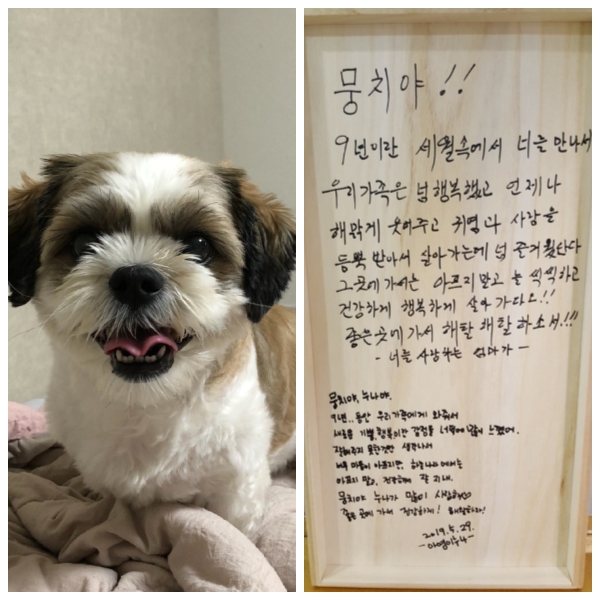 뭉치야!!
9년이란 세월속에서 너를 만나서
우리가족은 넘 행복했고 언제나
해맑게 웃어주고 귀염과 사랑을
듬뿍 받아서 살아가는데 넘 즐거웠단다
그곳에 가서는 아프지말고 늘 씩씩하고
건강하게 행복하게 살아가다오!!
좋은곳에 가서 해탈 해탈 하소서!!!
- 너를 사랑하는 엄마가 -
뭉치야, 누나야.
9년.. 동안 우리가족에게 와줘서
새로운 기쁨, 행복이란 감정을 너 덕에 느꼈어.
잘해주지 못한것만 생각나서
너무 마음이 아프지만, 하늘나라에서는
아프지 말고, 건강하게 잘 지내.
뭉치야 누나가 많이 사랑해♡
좋은 곳에 가서 건강하게! 해탈하자!
2019.5.29.
-아영이누나-